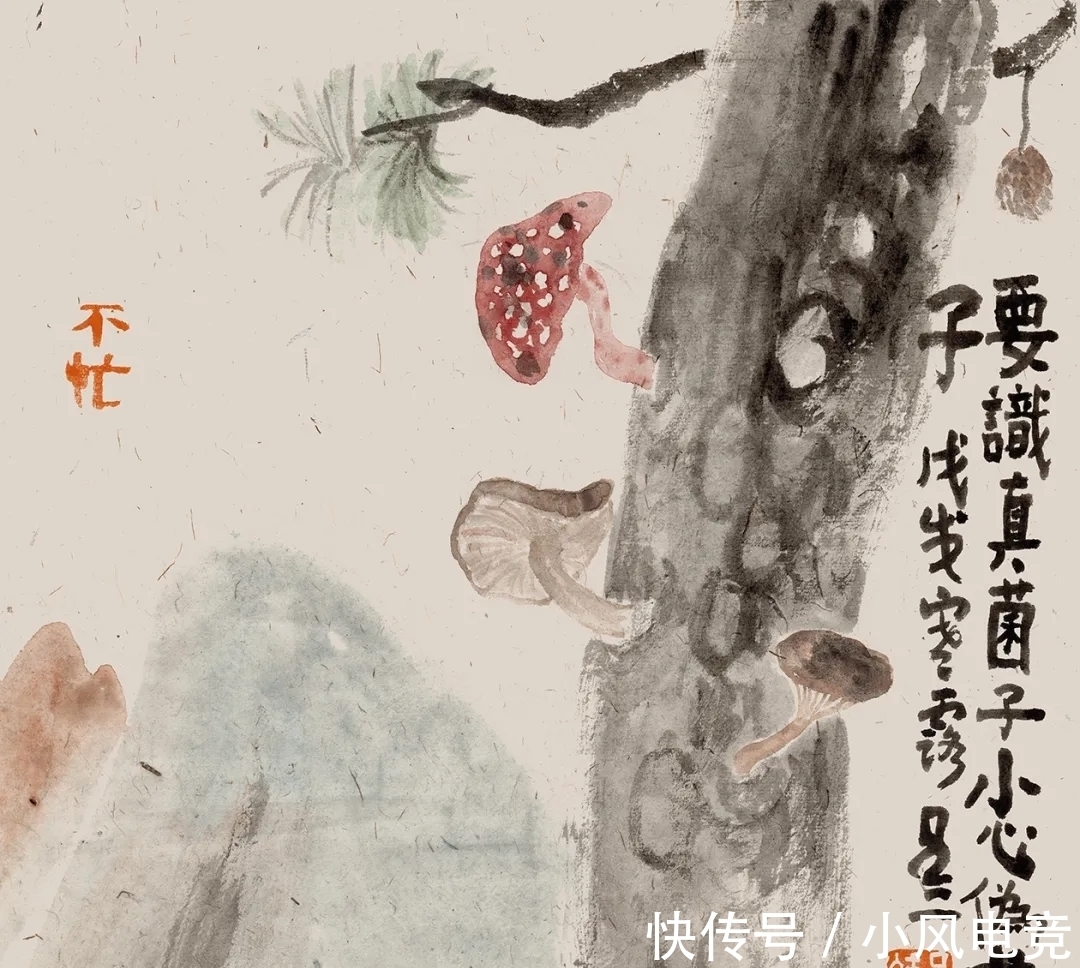 要識真菌子小心偽
子
戊戌寒露
不忙
快传号 / 小风电竞